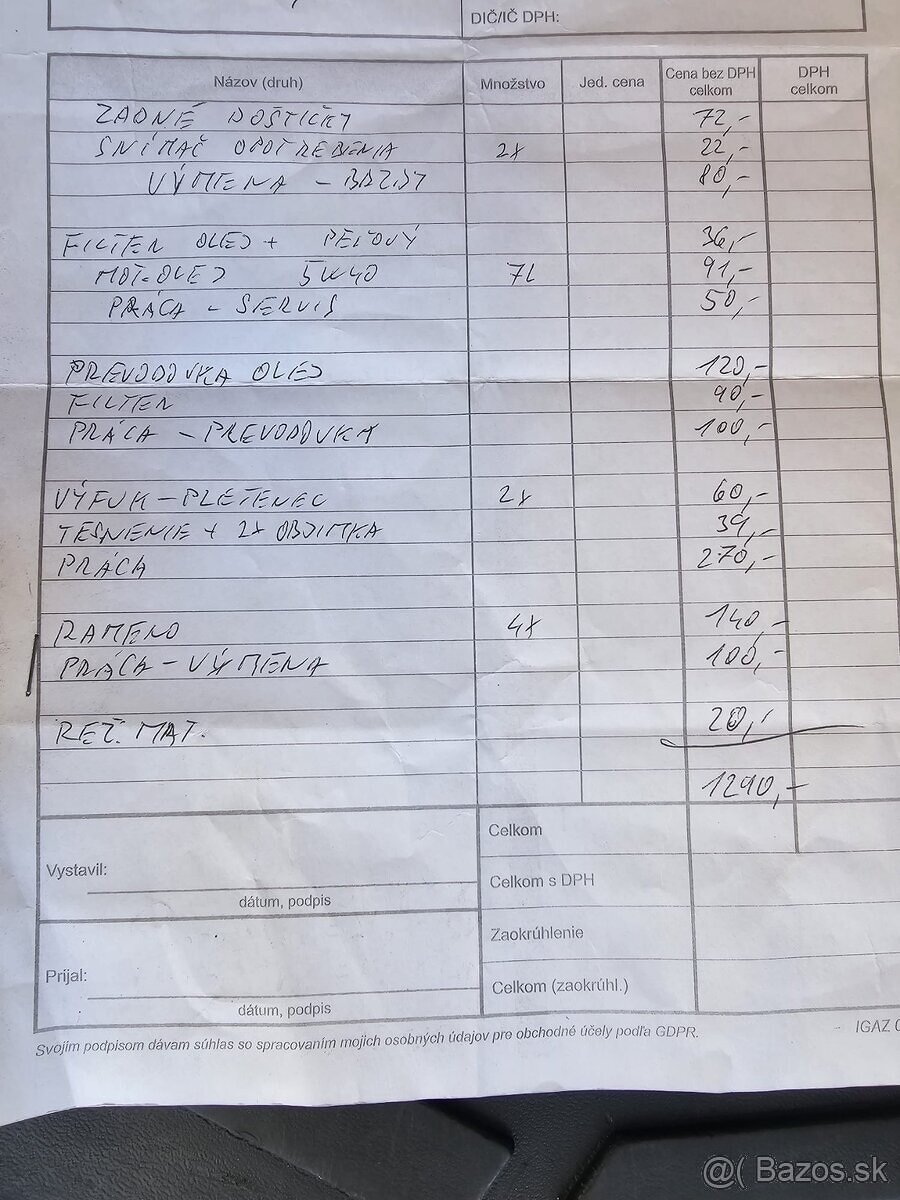 DIČ/IČ DPH:
Názov (druh) Množstvo Jed. cena Cena bez DPH celkom DPH celkom
ZADNÉ DOŠTIČKY 72,-
SNÍMAČ OPOTREBENIA 2x 22,-
VÝMENA - BRZDY 80,-
FILTER OLEJ + PEĽOVÝ 36,-
MOT. OLEJ 5W40 7L 91,-
PRÁCA - SERVIS 50,-
PREVODOVKA OLEJ 120,-
FILTER 90,-
PRÁCA - PREVODOVKA 100,-
VÝFUK - PLETENEC 2x 60,-
TESNENIE + 2x OBJIMKA 39,-
PRÁCA 270,-
RAMENO 4x 140,-
PRÁCA - VÝMENA 100,-
REŽ. MAT. 20,-
1290,-
Celkom
Vystavil:
Celkom s DPH
dátum, podpis
Zaokrúhlenie
Prijal:
Celkom (zaokrúhl.)
dátum, podpis
Svojím podpisom dávam súhlas so spracovaním mojich osobných údajov pre obchodné účely podľa GDPR.
IGAZ
@( Bazos.sk